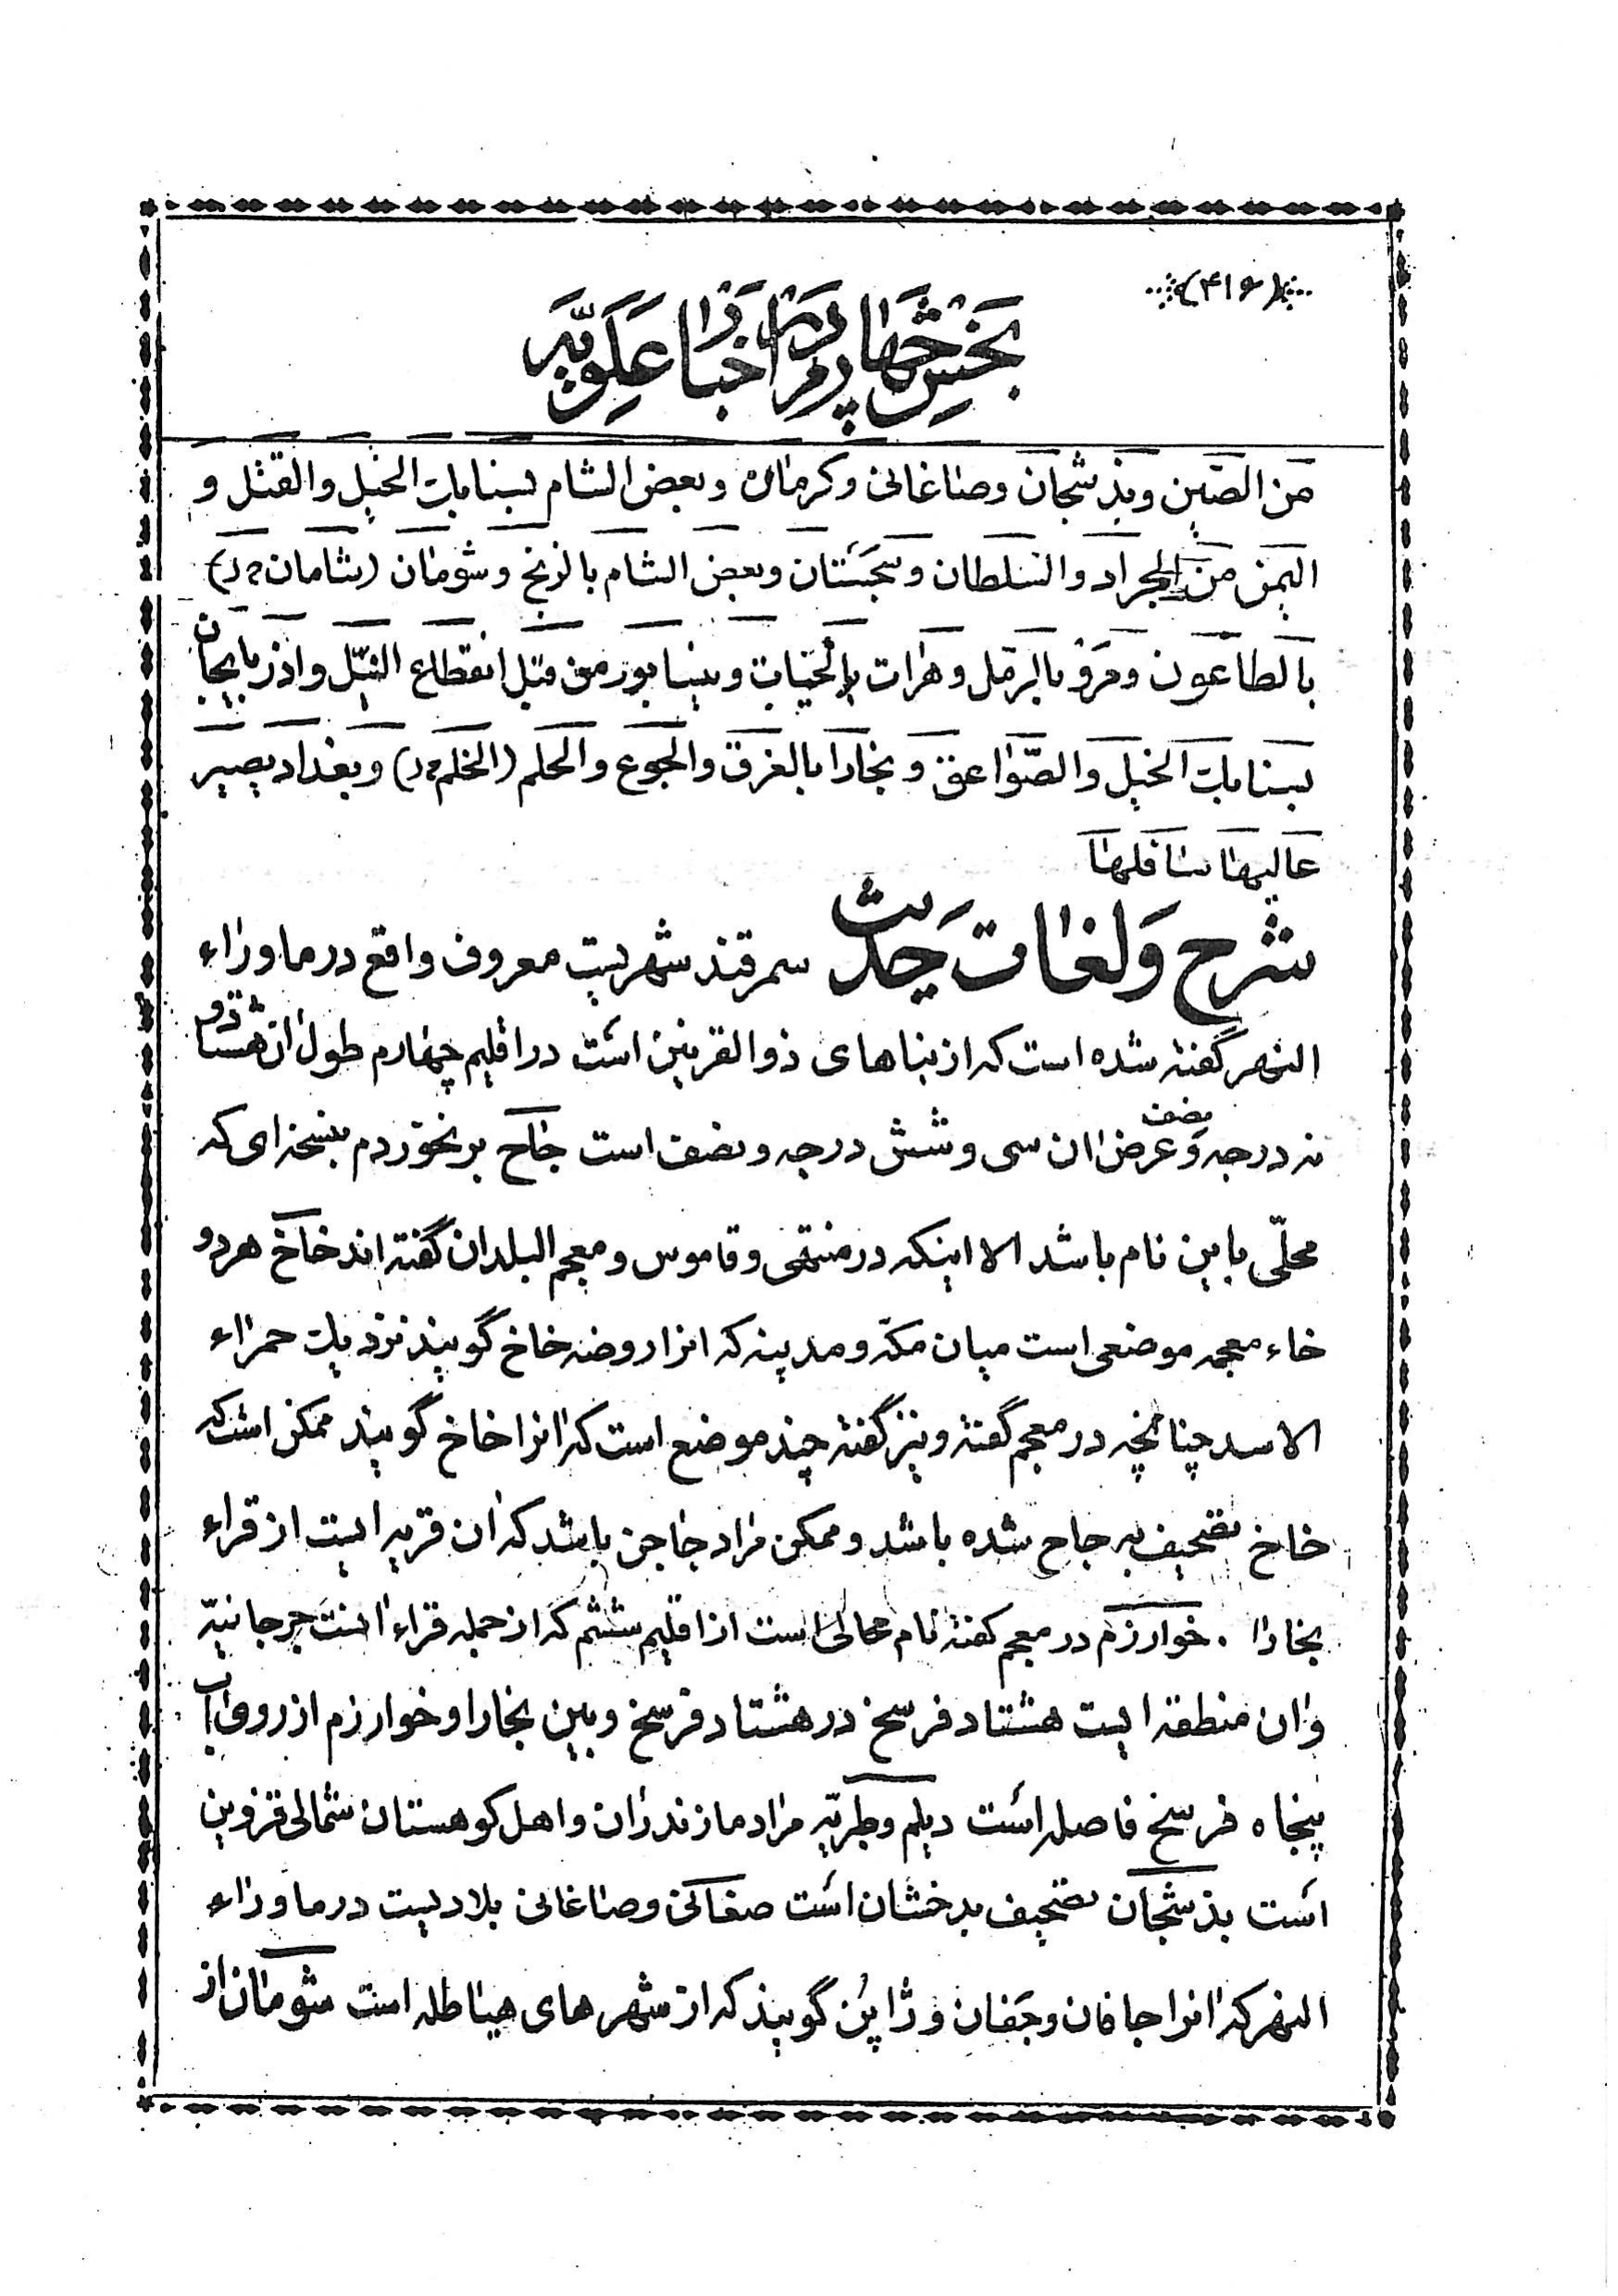 (۴۱۶)
بخش چهارم در اخبار علویه
من الصین وبذشجان وصاغانی وکرمان وبعض الشام بسنابک الخیل والقتل و
الیمن من الجراد والسلطان وسجستان وبعض الشام بالزنج وشومان (شامان خ‌د)
بالطاعون ومرو بالرمل وهرات بالحیات ونیسابور من قبل انقطاع النیل واذربایجان
بسنابک الخیل والصواعق وبخارا بالغرق والجوع والحلم (الخلم خ‌د) وبغداد یصیر
عالیها سافلها
شرح ولغات حدیث سمرقند شهریست معروف واقع در ماوراء
النهر گفته شده است که از بناهای ذوالقرنین است در اقلیم چهارم طول ان هشتاد و
نه درجه و نصف وعرض ان سی و شش درجه و نصف است جاح بر نخوردم بنسخه‌ای که
محلّی باین نام باشد الا اینکه در منتهی و قاموس و معجم البلدان گفته اند خاخ هر دو
خاء معجمه موضعی است میان مکه و مدینه که انرا روضه خاخ گویند نزدیک حمراء
الاسد چنانچه در معجم گفته و نیز گفته چند موضع است که انرا خاخ گویند ممکن است که
خاخ تصحیف به جاح شده باشد و ممکن مراد جاجن باشد که ان قریه ایست از قراء
بخارا . خوارزم در معجم گفته نام محالی است از اقلیم ششم که از جمله قراء انست جرجانیه
وان منطقه ایست هشتاد فرسخ در هشتاد فرسخ و بین بخارا و خوارزم از روی اب
پنجاه فرسخ فاصله است دیلم وطبریّه مراد مازندران و اهل کوهستان شمالی قزوین
است بذشجان تصحیف بدخشان است صغاکی وصاغانی بلادیست در ماوراء
النهر که انرا جافان و جغان و ژاپن گویند که از شهرهای هیاطله است شومان از